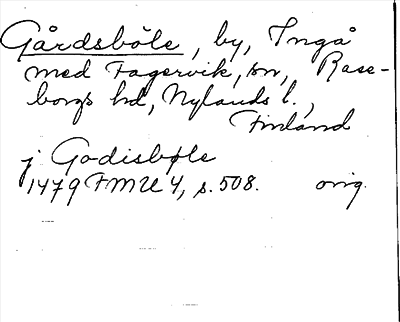 Gårdsböle, by, Ingå
med Fagervik, sn, Rase-
borgs hd, Nylands l.,
Finland
j Godisbøle
1479 FMU 4, s. 508. orig.